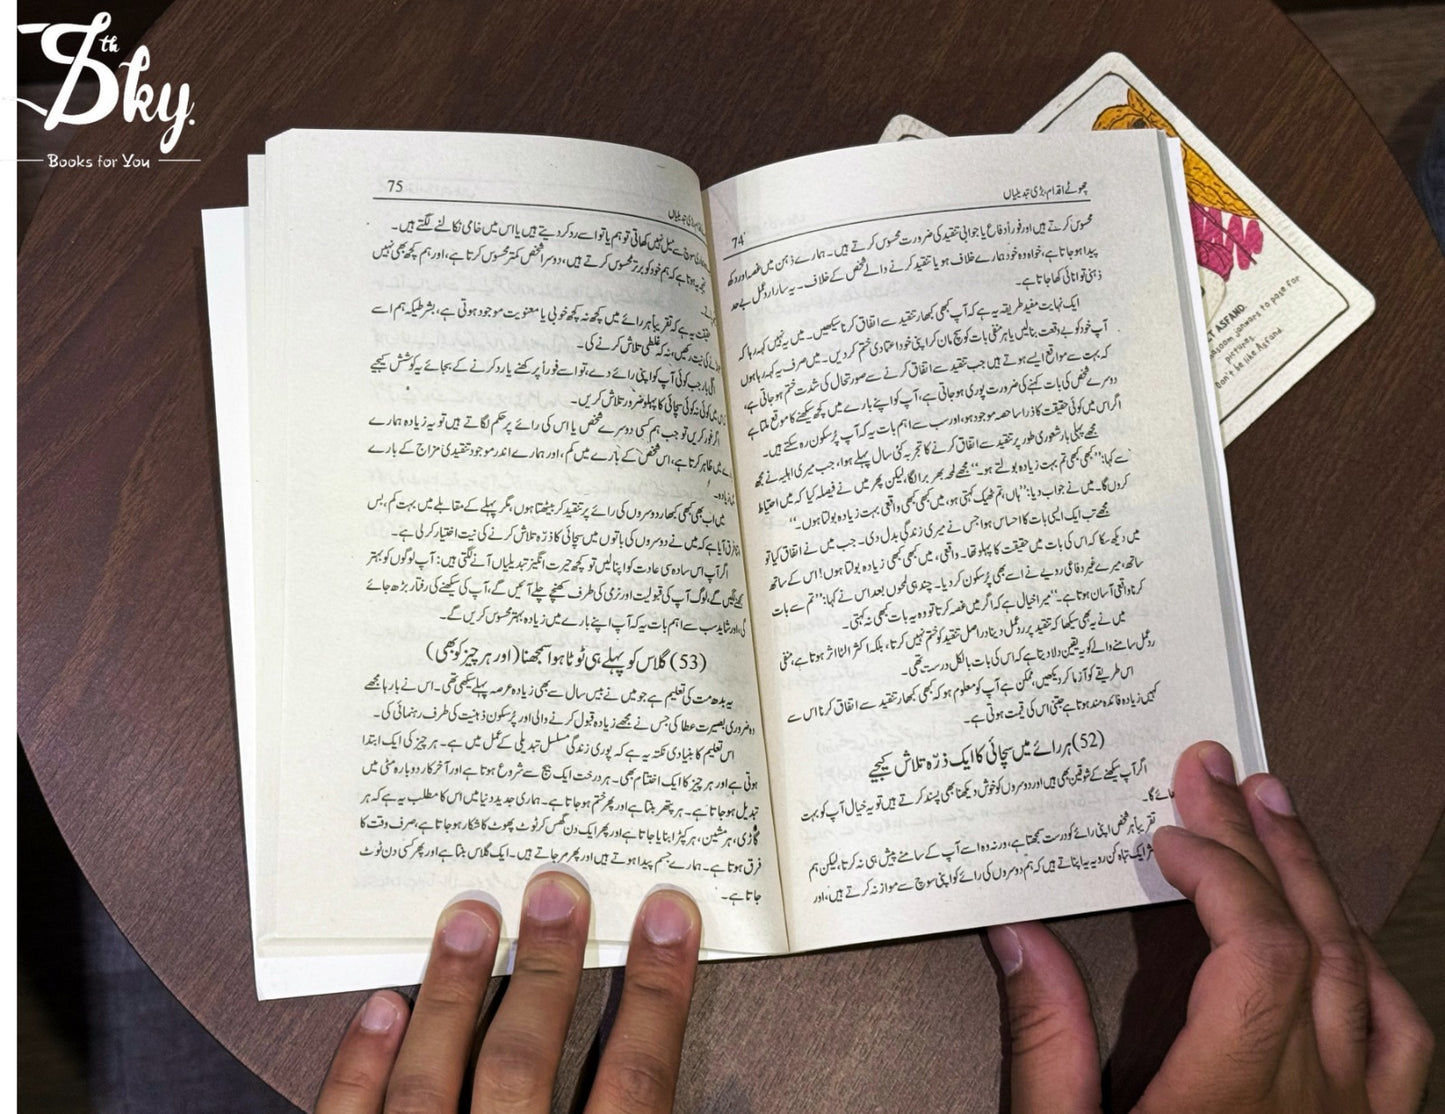 8th Sky.
Books for You
چھوٹے اقدام، بڑی تبدیلیاں
74
محسوس کرتے ہیں اور فوراً دفاع یا جوابی تنقید کی ضرورت محسوس کرتے ہیں۔ ہمارے ذہن میں غصہ اور دکھ
پیدا ہو جاتا ہے، خواہ وہ خود ہمارے خلاف ہو یا تنقید کرنے والے شخص کے خلاف۔ یہ سارا ردعمل بے حد
ذہنی توانائی کھا جاتا ہے۔
ایک نہایت مفید طریقہ یہ ہے کہ آپ کبھی کبھار تنقید سے اتفاق کرنا سیکھیں۔ میں یہ نہیں کہہ رہا کہ
آپ خود کو بے وقعت بنا لیں یا ہر منفی بات کو سچ مان کر اپنی خود اعتمادی ختم کر دیں۔ میں صرف یہ کہہ رہا ہوں
کہ بہت سے مواقع ایسے ہوتے ہیں جب تنقید سے اتفاق کرنے سے صورتحال کی شدت ختم ہو جاتی ہے،
دوسرے شخص کی بات کہنے کی ضرورت پوری ہو جاتی ہے، آپ کو اپنے بارے میں کچھ سیکھنے کا موقع ملتا ہے
اگر اس میں کوئی حقیقت کا ذرا سا حصہ موجود ہو، اور سب سے اہم بات یہ کہ آپ پرسکون رہ سکتے ہیں۔
مجھے پہلی بار شعوری طور پر تنقید سے اتفاق کرنے کا تجربہ کئی سال پہلے ہوا، جب میری اہلیہ نے مجھ
سے کہا: ”کبھی کبھی تم بہت زیادہ بولتے ہو۔“ مجھے لمحہ بھر برا لگا، لیکن پھر میں نے فیصلہ کیا کہ میں احتیاط
کروں گا۔ میں نے جواب دیا: ”ہاں، تم ٹھیک کہتی ہو، میں کبھی کبھی واقعی بہت زیادہ بولتا ہوں۔“
مجھے تب ایک ایسی بات کا احساس ہوا جس نے میری زندگی بدل دی۔ جب میں نے اتفاق کیا تو
میں دیکھ سکا کہ اس کی بات میں حقیقت کا پہلو تھا۔ واقعی، میں کبھی کبھی زیادہ بولتا ہوں! اس کے ساتھ
ساتھ، میرے غیر دفاعی رویے نے اسے بھی پرسکون کر دیا۔ چند ہی لمحوں بعد اس نے کہا: ”تم سے بات
کرنا واقعی آسان ہوتا ہے۔“ میرا خیال ہے کہ اگر میں غصہ کرتا تو وہ یہ بات کبھی نہ کہتی۔
میں نے یہ بھی سیکھا کہ تنقید پر ردعمل دینا دراصل تنقید کو ختم نہیں کرتا، بلکہ اکثر الٹا اثر ہوتا ہے، منفی
ردعمل سامنے والے کو یہ یقین دلا دیتا ہے کہ اس کی بات بالکل درست تھی۔
اس طریقے کو آزما کر دیکھیں، ممکن ہے آپ کو معلوم ہو کہ کبھی کبھار تنقید سے اتفاق کرنا اس سے
کہیں زیادہ فائدہ مند ہوتا ہے جتنی اس کی قیمت ہوتی ہے۔
(52) ہر رائے میں سچائی کا ایک ذرّہ تلاش کیجیے
اگر آپ سیکھنے کے شوقین بھی ہیں اور دوسروں کو خوش دیکھنا بھی پسند کرتے ہیں تو یہ خیال آپ کو بہت
جائے گا۔
تقریباً ہر شخص اپنی رائے کو درست سمجھتا ہے، ورنہ وہ اسے آپ کے سامنے پیش ہی نہ کرتا، لیکن ہم
ایک تباہ کن رویہ یہ اپناتے ہیں کہ ہم دوسروں کی رائے کو اپنی سوچ سے موازنہ کرتے ہیں، اور
بڑی تبدیلیاں
75
سوچ سے میل نہیں کھاتی تو ہم یا تو اسے رد کر دیتے ہیں یا اس میں خامی نکالنے لگتے ہیں۔
نتیجہ یہ ہوتا ہے کہ ہم خود کو برتر محسوس کرتے ہیں، دوسرا شخص کمتر محسوس کرتا ہے، اور ہم کچھ بھی نہیں
حقیقت یہ ہے کہ تقریباً ہر رائے میں کچھ نہ کچھ خوبی یا معنویت موجود ہوتی ہے، بشرطیکہ ہم اسے
کی نیت رکھیں، نہ کہ غلطی تلاش کرنے کی۔
اگلی بار جب کوئی آپ کو اپنی رائے دے، تو اسے فوراً پرکھنے یا رد کرنے کے بجائے یہ کوشش کیجیے
میں کوئی نہ کوئی سچائی کا پہلو ضرور تلاش کریں۔
اگر غور کریں تو جب ہم کسی دوسرے شخص یا اس کی رائے پر حکم لگاتے ہیں تو یہ زیادہ ہمارے
میں ظاہر کرتا ہے، اس شخص کے بارے میں کم، اور ہمارے اندر موجود تنقیدی مزاج کے بارے
زیادہ۔
میں اب بھی کبھی کبھار دوسروں کی رائے پر تنقید کر بیٹھتا ہوں، مگر پہلے کے مقابلے میں بہت کم، بس
فرق آیا ہے کہ میں نے دوسروں کی باتوں میں سچائی کا ذرّہ تلاش کرنے کی نیت اختیار کر لی ہے۔
اگر آپ اس سادہ سی عادت کو اپنا لیں تو کچھ حیرت انگیز تبدیلیاں آنے لگتی ہیں: آپ لوگوں کو بہتر
سمجھنے لگیں گے، لوگ آپ کی قبولیت اور نرمی کی طرف کھنچے چلے آئیں گے، آپ کی سیکھنے کی رفتار بڑھ جائے
گی، اور شاید سب سے اہم بات یہ کہ آپ اپنے بارے میں زیادہ بہتر محسوس کریں گے۔
(53) گلاس کو پہلے ہی ٹوٹا ہوا سمجھنا (اور ہر چیز کو بھی)
یہ بدھ مت کی تعلیم ہے جو میں نے بیس سال سے بھی زیادہ عرصہ پہلے سیکھی تھی۔ اس نے بارہا مجھے
وہ ضروری بصیرت عطا کی جس نے مجھے زیادہ قبول کرنے والی اور پرسکون ذہنیت کی طرف رہنمائی کی۔
اس تعلیم کا بنیادی نکتہ یہ ہے کہ پوری زندگی مسلسل تبدیلی کے عمل میں ہے۔ ہر چیز کی ایک ابتدا
ہوتی ہے اور ہر چیز کا ایک اختتام بھی۔ ہر درخت ایک بیج سے شروع ہوتا ہے اور آخر کار دوبارہ مٹی میں
تبدیل ہو جاتا ہے۔ ہر پتھر بنتا ہے اور پھر ختم ہو جاتا ہے۔ ہماری جدید دنیا میں اس کا مطلب یہ ہے کہ ہر
گاڑی، ہر مشین، ہر کپڑا بنایا جاتا ہے اور پھر ایک دن گھس کر ٹوٹ پھوٹ کا شکار ہو جاتا ہے، صرف وقت کا
فرق ہوتا ہے۔ ہمارے جسم پیدا ہوتے ہیں اور پھر مر جاتے ہیں۔ ایک گلاس بنتا ہے اور پھر کسی دن ٹوٹ
جاتا ہے۔
ASFAND.
janwars to pose for
pictures.
Don't be like Asfand.